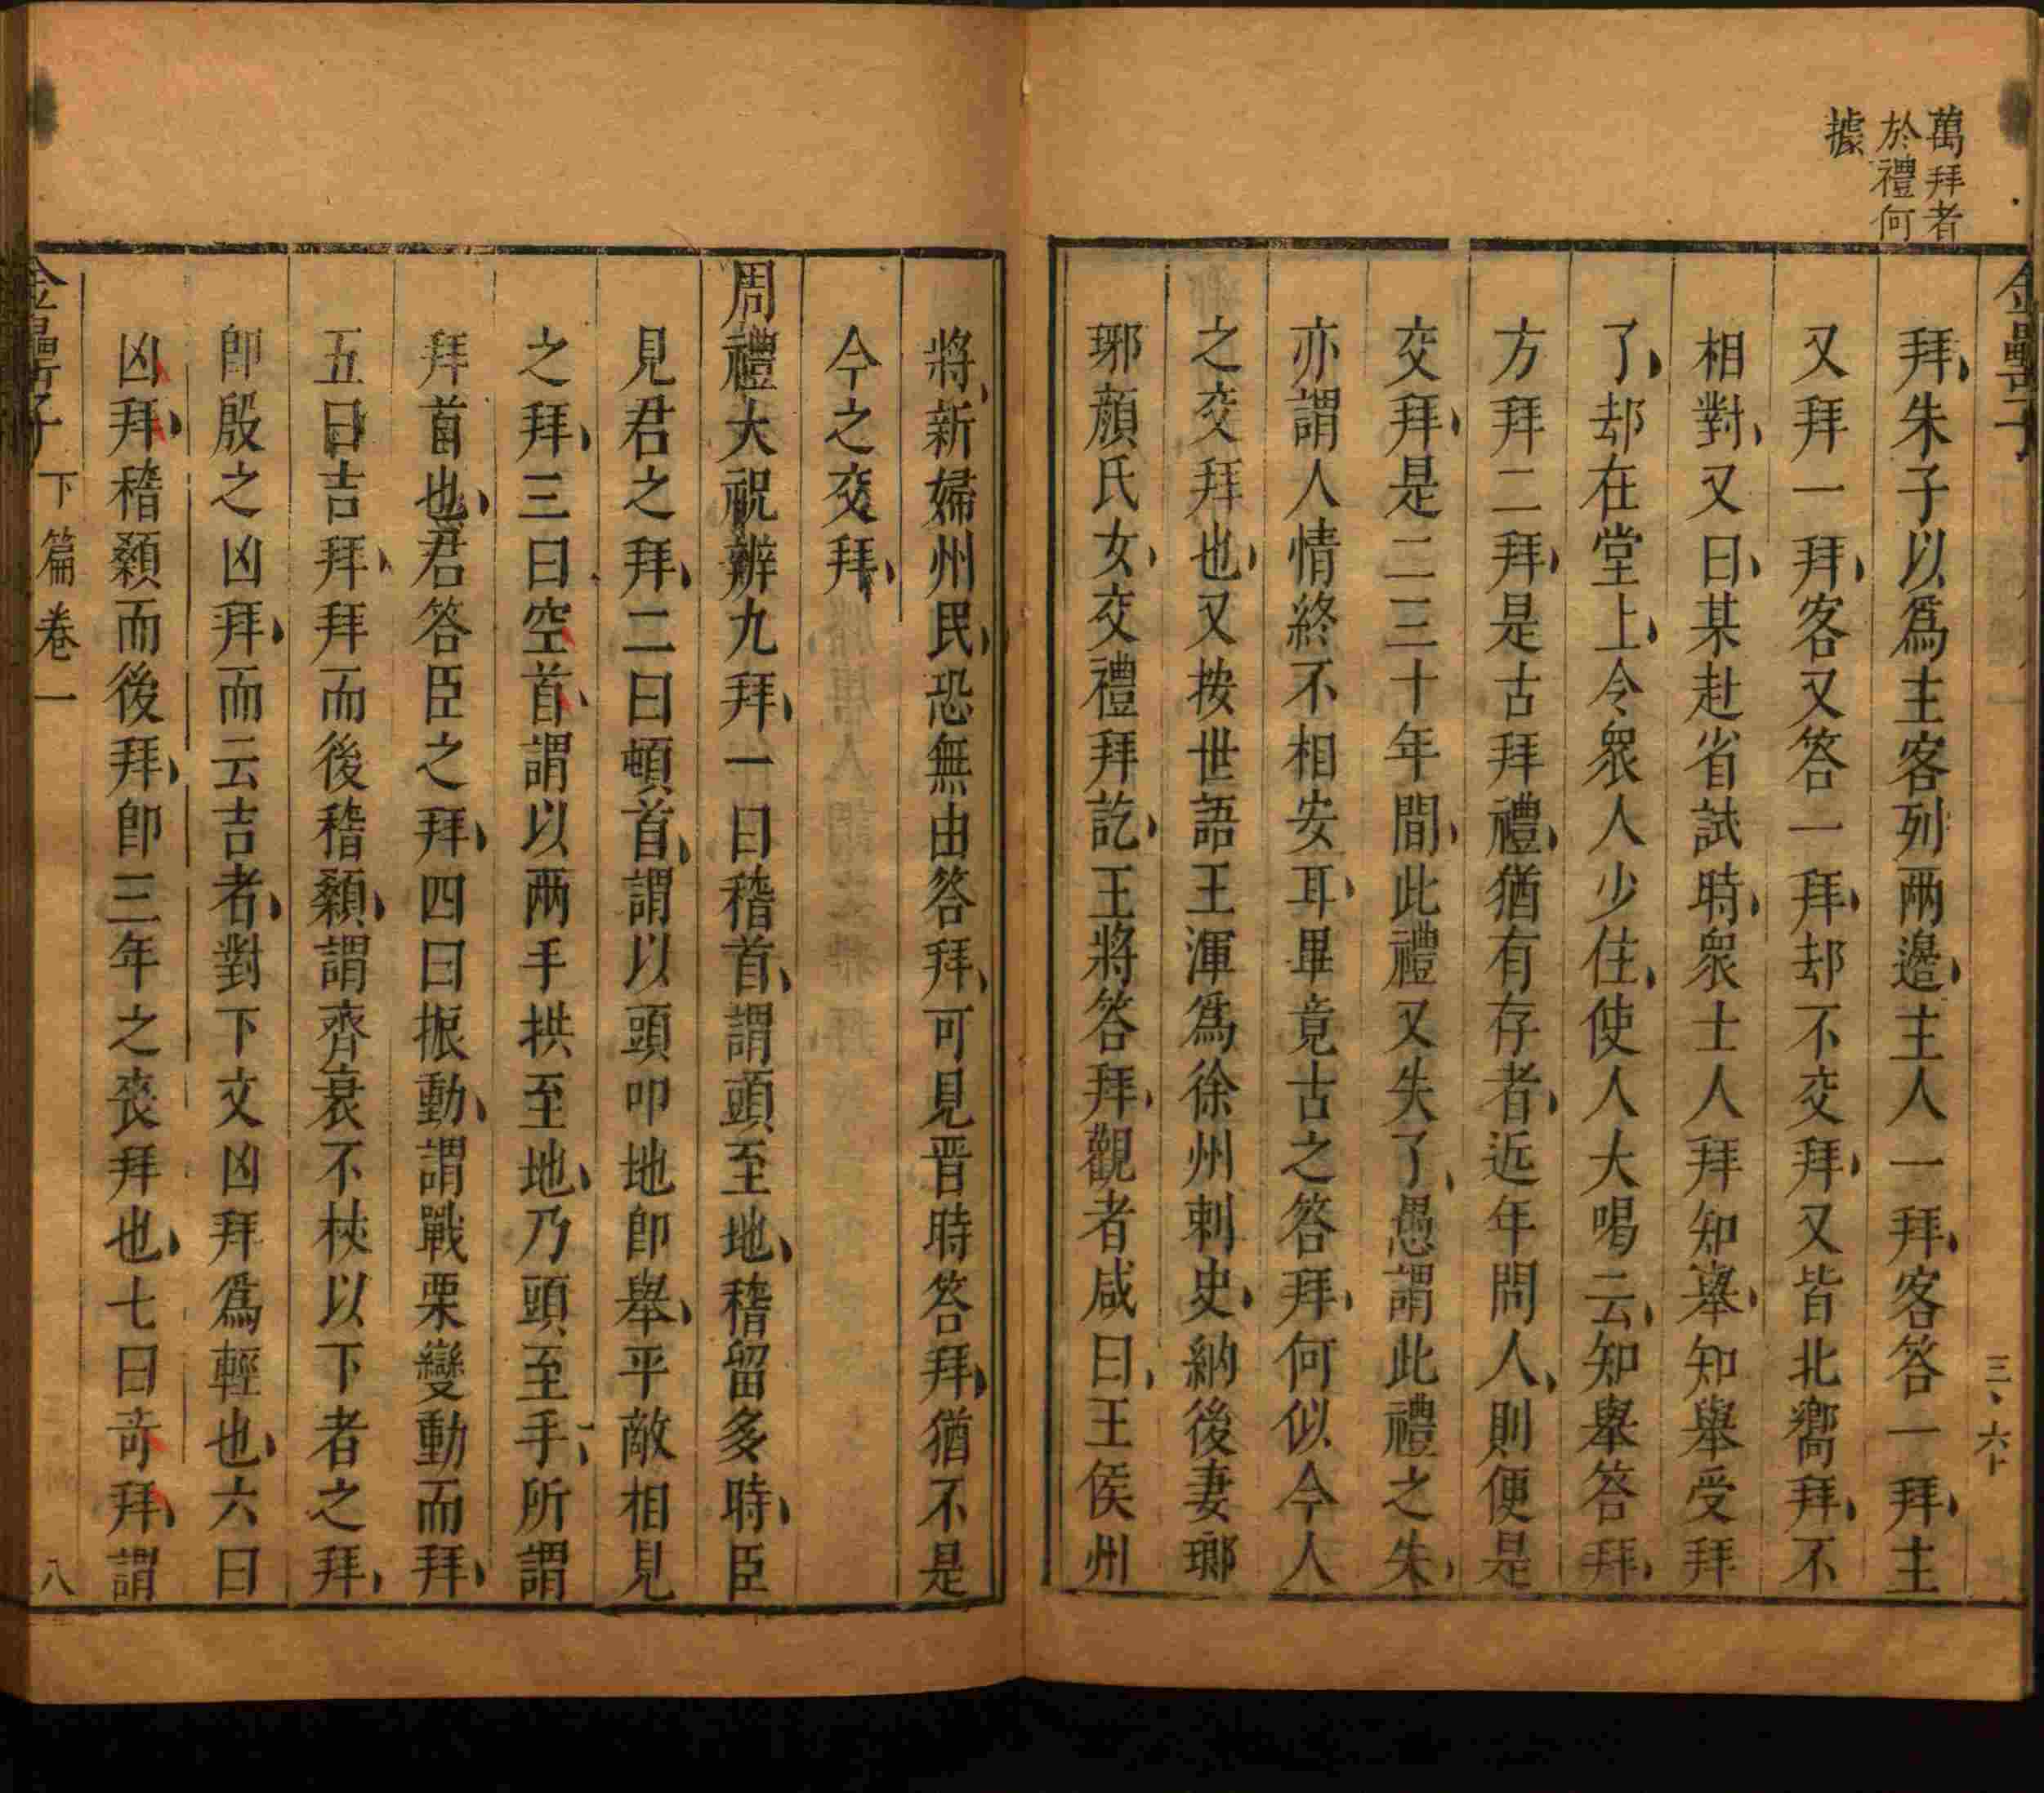 萬拜者
於禮何
據
金罍子
三、六十
拜、朱子以爲主客列兩邊、主人一拜、客答一拜、主
又拜一拜、客又答一拜、却不交拜、又皆北嚮拜、不
相對、又曰、某赴省試時、衆士人拜知舉、知舉受拜
了、却在堂上、令衆人少住、使人大喝云、知舉答拜、
方拜二拜、是古拜禮、猶有存者、近年問人、則便是
交拜、是二三十年間、此禮又失了、愚謂此禮之失、
亦謂人情終不相安耳、畢竟古之答拜、何似今人
之交拜也、又按世語王渾爲徐州刺史、納後妻瑯
琊顔氏女、交禮拜訖、王將答拜、觀者咸曰、王侯州
將、新婦州民、恐無由答拜、可見晋時答拜、猶不是
今之交拜、
周禮大祝辨九拜、一曰稽首、謂頭至地、稽留多時、臣
見君之拜、二曰頓首、謂以頭叩地卽舉、平敵相見
之拜、三曰空首、謂以两手拱至地、乃頭至手、所謂
拜首也、君答臣之拜、四曰振動、謂戰栗變動而拜、
五曰吉拜、拜而後稽顙、謂齊衰不杖以下者之拜、
卽殷之凶拜、而云吉者、對下文凶拜爲輕也、六曰
凶拜、稽顙而後拜、卽三年之喪拜也、七曰奇拜、謂
金罍子
下篇卷一
八